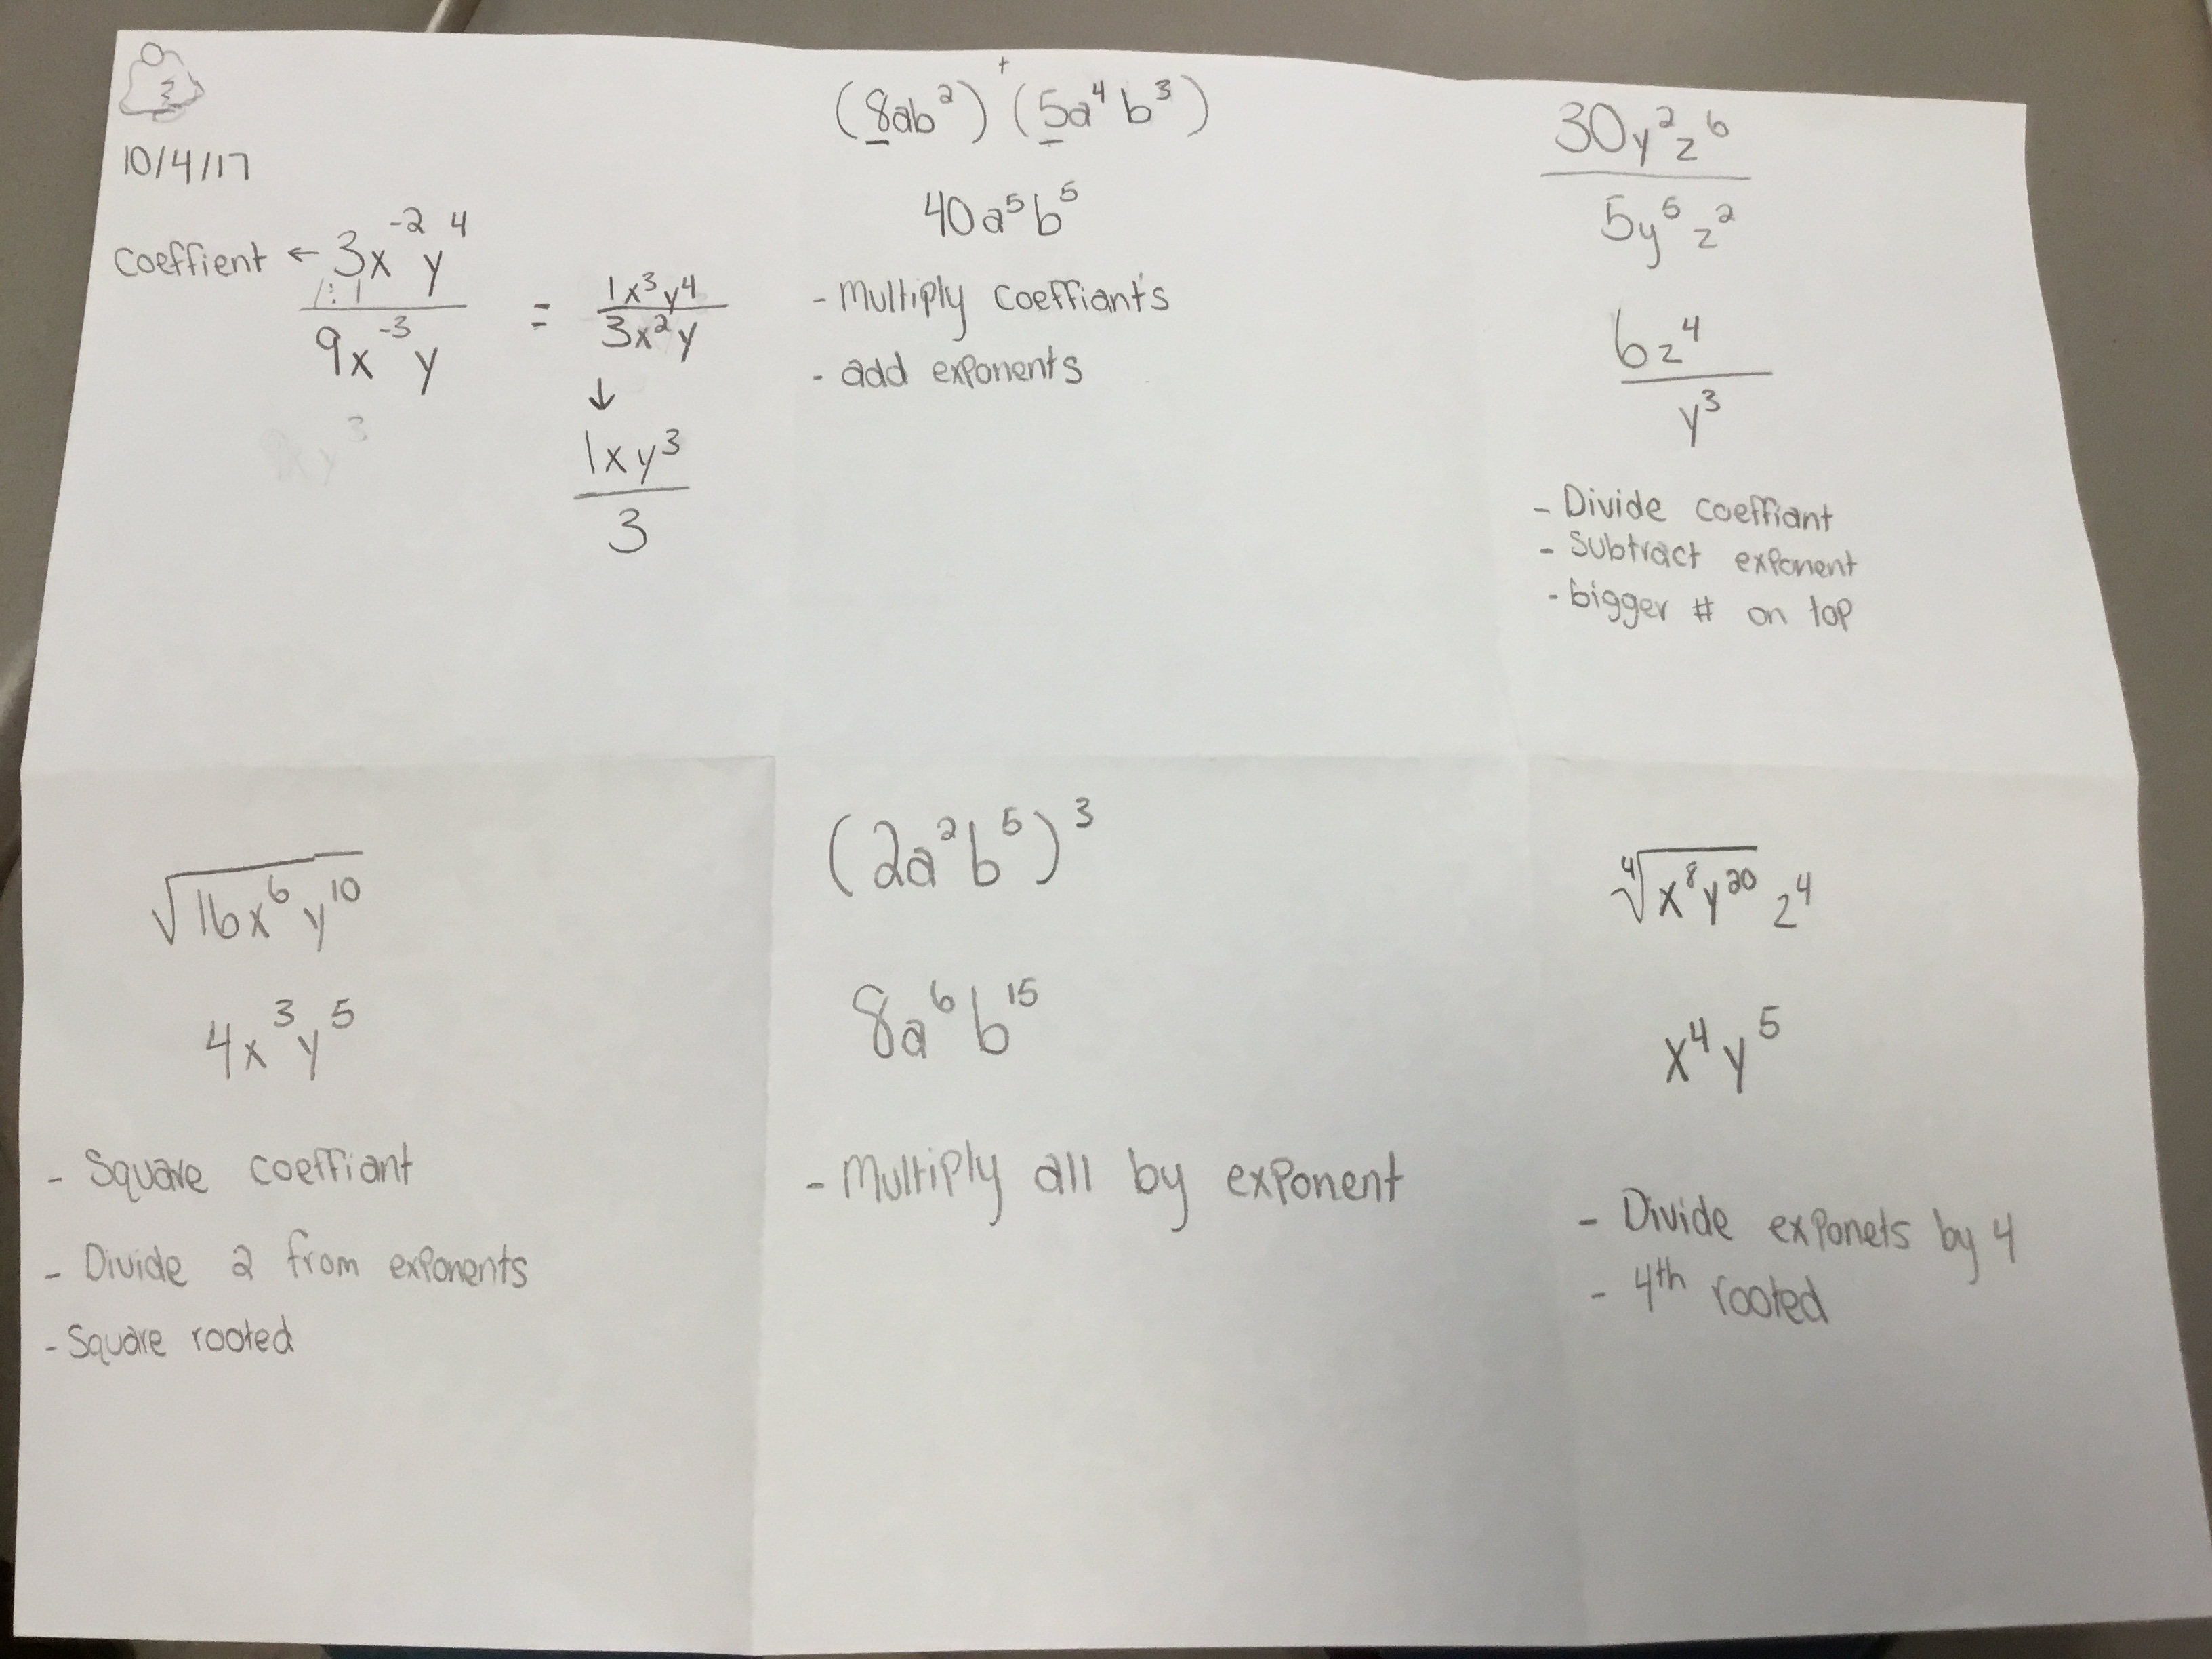 10/4/17
Coeffient ← 3x⁻²y⁴ / 9x⁻³y = 1x³y⁴ / 3x²y
↓
1xy³ / 3
(8ab²) + (5a⁴b³)
40a⁵b⁵
- Multiply coeffiants
- add exponents
30y²z⁶ / 5y⁵z²
6z⁴ / y³
- Divide coeffiant
- Subtract exponent
- bigger # on top
√16x⁶y¹⁰
4x³y⁵
- Square coeffiant
- Divide 2 from exponents
- Square rooted
(2a²b⁵)³
8a⁶b¹⁵
- Multiply all by exponent
⁴√x⁸y²⁰ z⁴
x⁴y⁵
- Divide exponets by 4
- 4th rooted